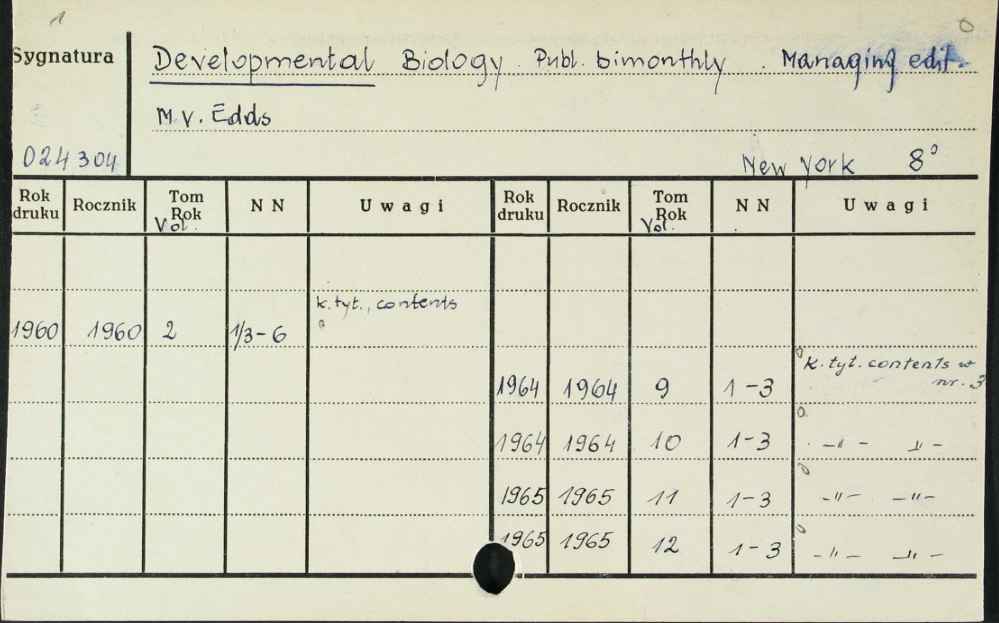 1
Sygnatura
Developmental Biology. Publ. bimonthly. Managing edit.
M.V. Edds
024304
New York 8°
Rok druku Rocznik Tom Rok Vol. N N Uwagi Rok druku Rocznik Tom Rok Vol. N N Uwagi
k.tyt., contents
1960 1960 2 1/3-6
k.tyt. contents w
1964 1964 9 1-3 nr. 3
1964 1964 10 1-3 -"- -"-
1965 1965 11 1-3 -"- -"-
1965 1965 12 1-3 -"- -"-